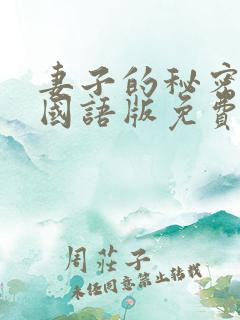 妻子的秘密
國語版免費
周莊子
未经同意禁止转载